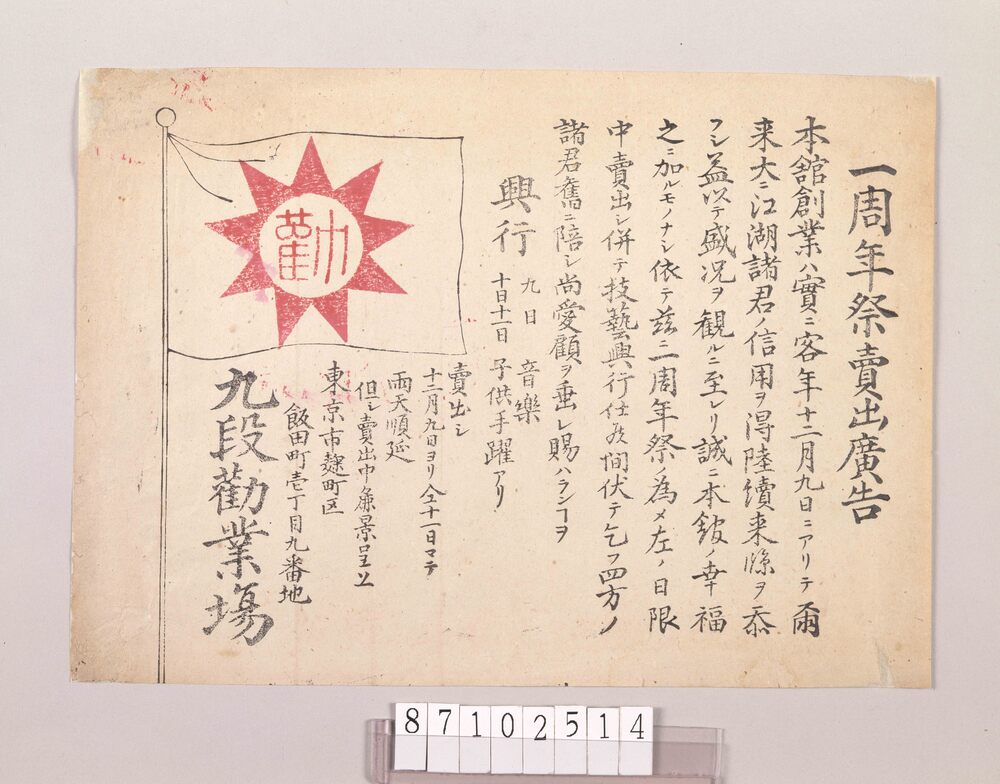 一周年祭賣出廣告
本舘創業ハ實ニ客年十二月九日ニアリテ爾
来大ニ江湖諸君ノ信用ヲ得陸續来臨ヲ忝
フシ益以テ盛况ヲ観ルニ至レリ誠ニ本舘ノ幸福
之ニ加ルモノナシ依テ茲ニ一周年祭ノ為メ左ノ日限
中賣出シ併テ技藝興行仕候間伏テ乞フ四方ノ
諸君奮ニ陪シ尚愛顧ヲ垂レ賜ハランヿヲ
興行
九日 音樂
十日十一日 子供手躍アリ
賣出シ
十二月九日ヨリ仝十一日マテ
雨天順延
但シ賣出中廉景呈ス
東京市麹町区
飯田町壱丁目九番地
九段勸業塲
勸
87102514